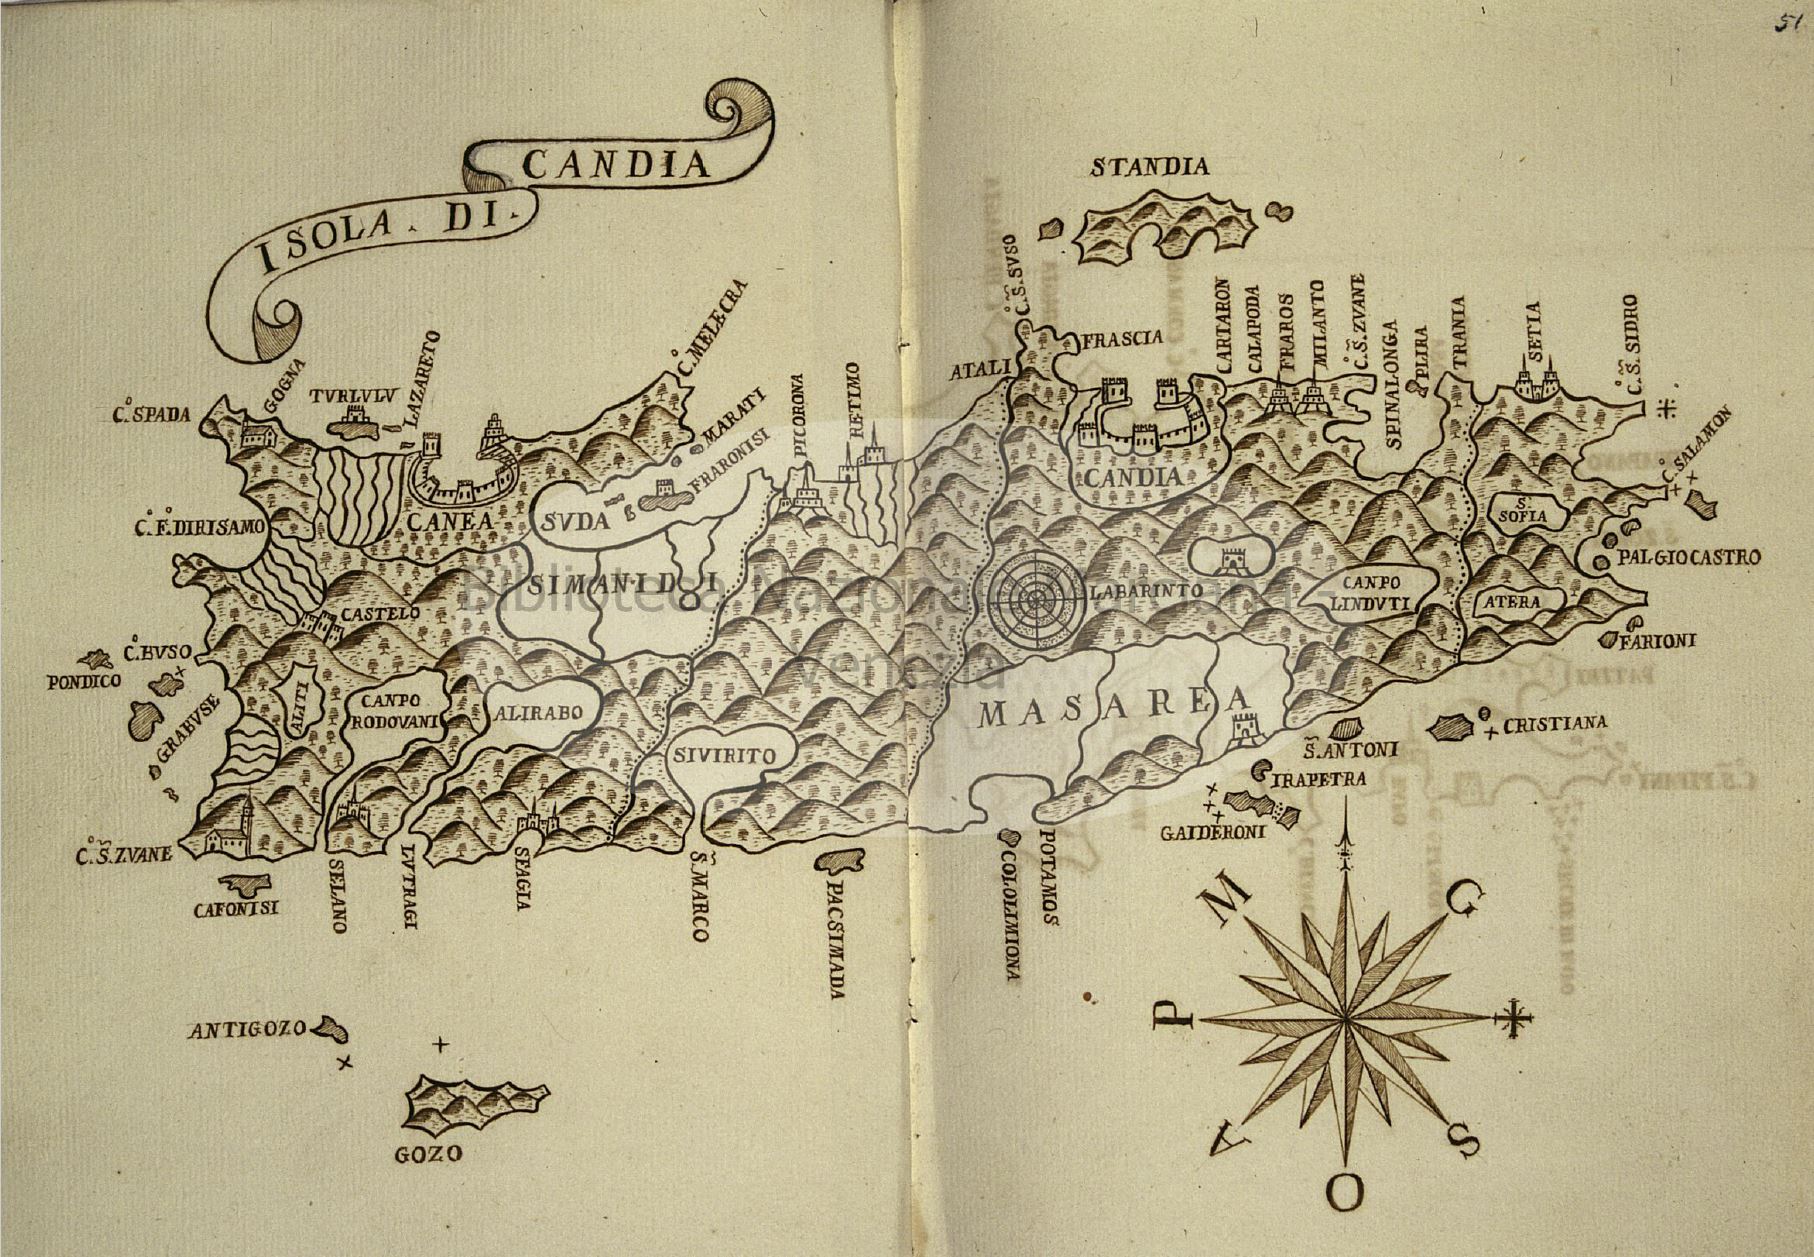 51
ISOLA . DI .
CANDIA
STANDIA
C.º SPADA
GOGNA
TVRLVLV
LAZARETO
C.º MELECRA
MARATI
FRARONISI
PICORONA
RETIMO
ATALI
C.º S. SVSO
FRASCIA
CARTARON
CALAPODA
FRAROS
MILANTO
C.º S. ZVANE
SPINALONGA
PLIRA
TRANIA
SETIA
C.º S. SIDRO
C.º SALAMON
CANEA
SVDA
CANDIA
S.
SOFIA
PALGIOCASTRO
C.º F.º DIRISAMO
SIMANIDOI
LABARINTO
CANPO
LINDVTI
ATERA
FARIONI
CASTELO
C.º BVSO
PONDICO
GRABVSE
ALITI
CANPO
RODOVANI
ALIRABO
SIVIRITO
MASAREA
S. ANTONI
CRISTIANA
IRAPETRA
GAIDERONI
C.º S. ZVANE
CAFONISI
SELANO
LVTRAGI
SFAGIA
S. MARCO
PACSIMADA
COLOLIMIONA
POTAMOS
ANTIGOZO
GOZO
M
G
P
A
S
O
Biblioteca Nazionale Marciana -
Venezia